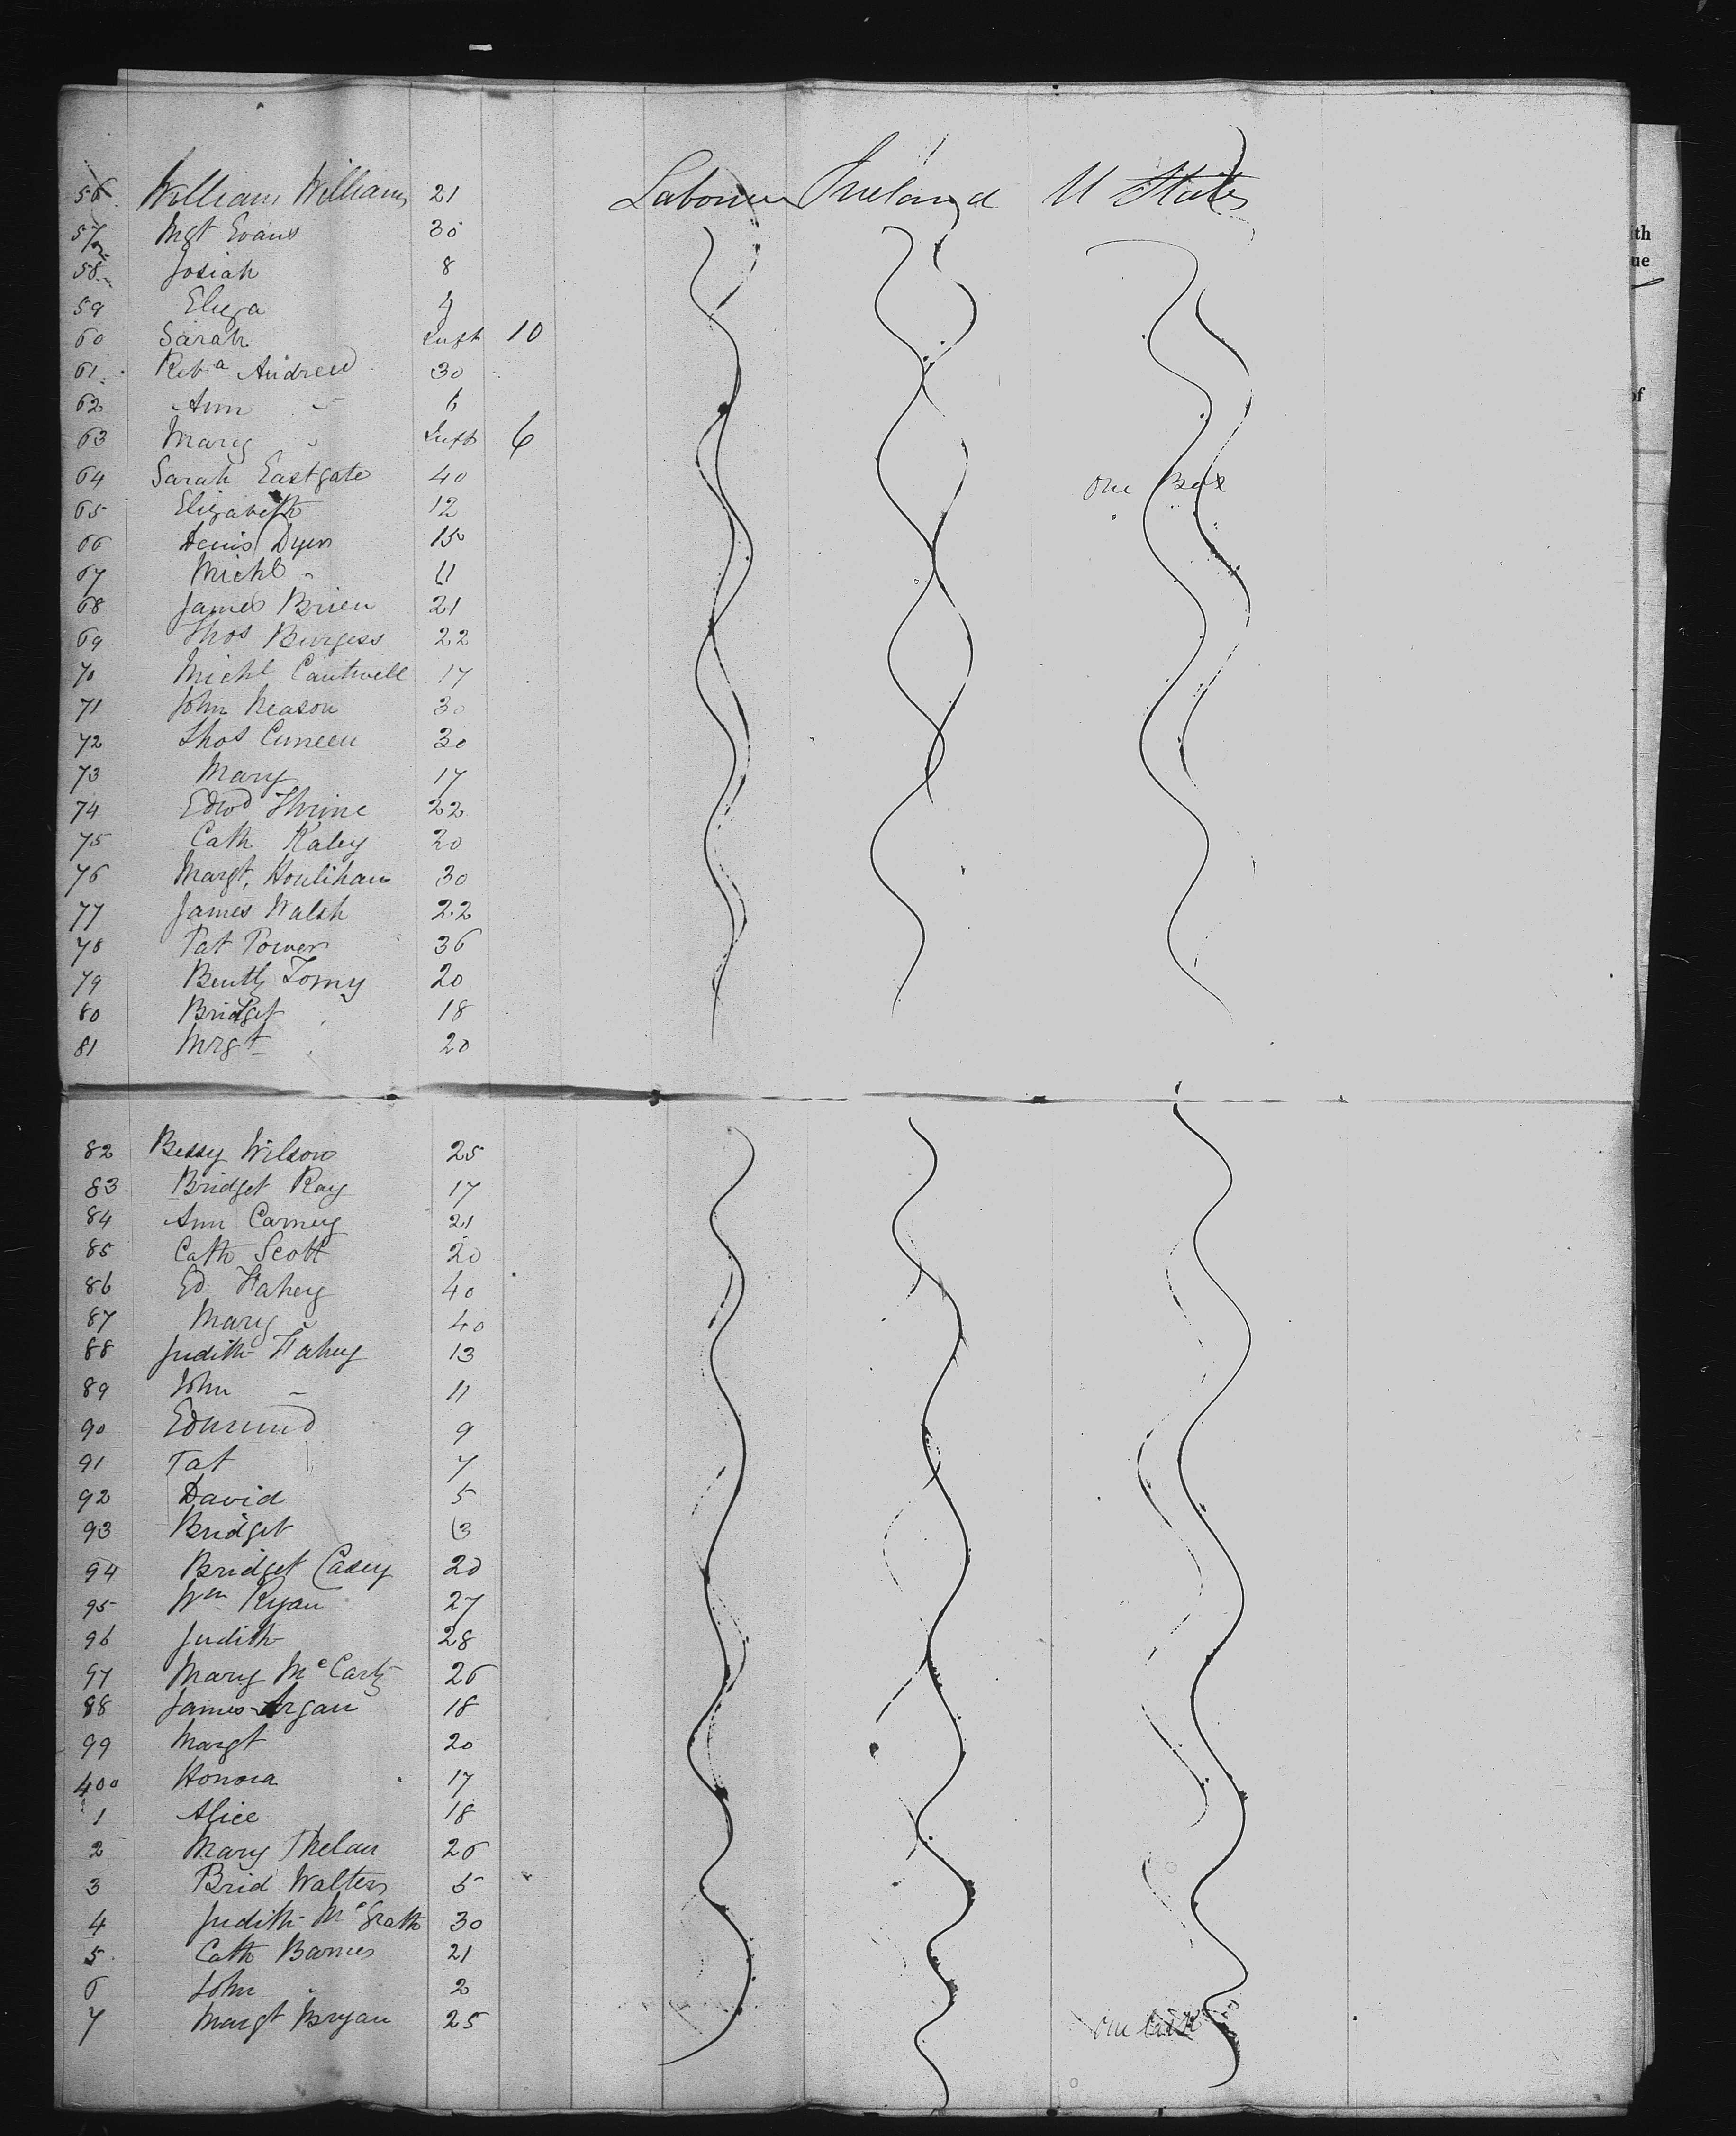 56 William Williams 21 Labourer Ireland U States
57 Mgt Evans 30
58 Josiah 8
59 Eliza 4
60 Sarah Inft 10
61 Reba Andrew 30
62 Ann " 6
63 Mary " Inft 6
64 Sarah Eastgate 40 one Box
65 Elizabeth 12
66 Denis Dyer 15
67 Michl " 11
68 James Brien 21
69 Thos Burgess 22
70 Michl Cantwell 17
71 John Neason 30
72 Thos Cuneen 30
73 Mary 17
74 Edwd 22
75 Cath Kaley 20
76 Margt Houlihan 30
77 James Walsh 22
78 Pat Power 36
79 20
80 Bridget 18
81 Mrgt 20
82 Bessy Wilson 25
83 Bridget Ray 17
84 Ann Carney 21
85 Cath Scott 20
86 Ed Fahey 40
87 Mary " 40
88 Judith Fahey 13
89 John - 11
90 Edmund 9
91 Pat 7
92 David 5
93 Bridget 3
94 Bridget Casey 20
95 Wm Ryan 27
96 Judith 28
97 Mary McCarty 26
98 James 18
99 Margt 20
400 Honora 17
1 Alice 18
2 Mary Phelan 26
3 Brid Walters 5
4 Judith McGrath 30
5 Cath Barnes 21
6 John " 2
7 Margt Bryan 25 one
th
ue
of